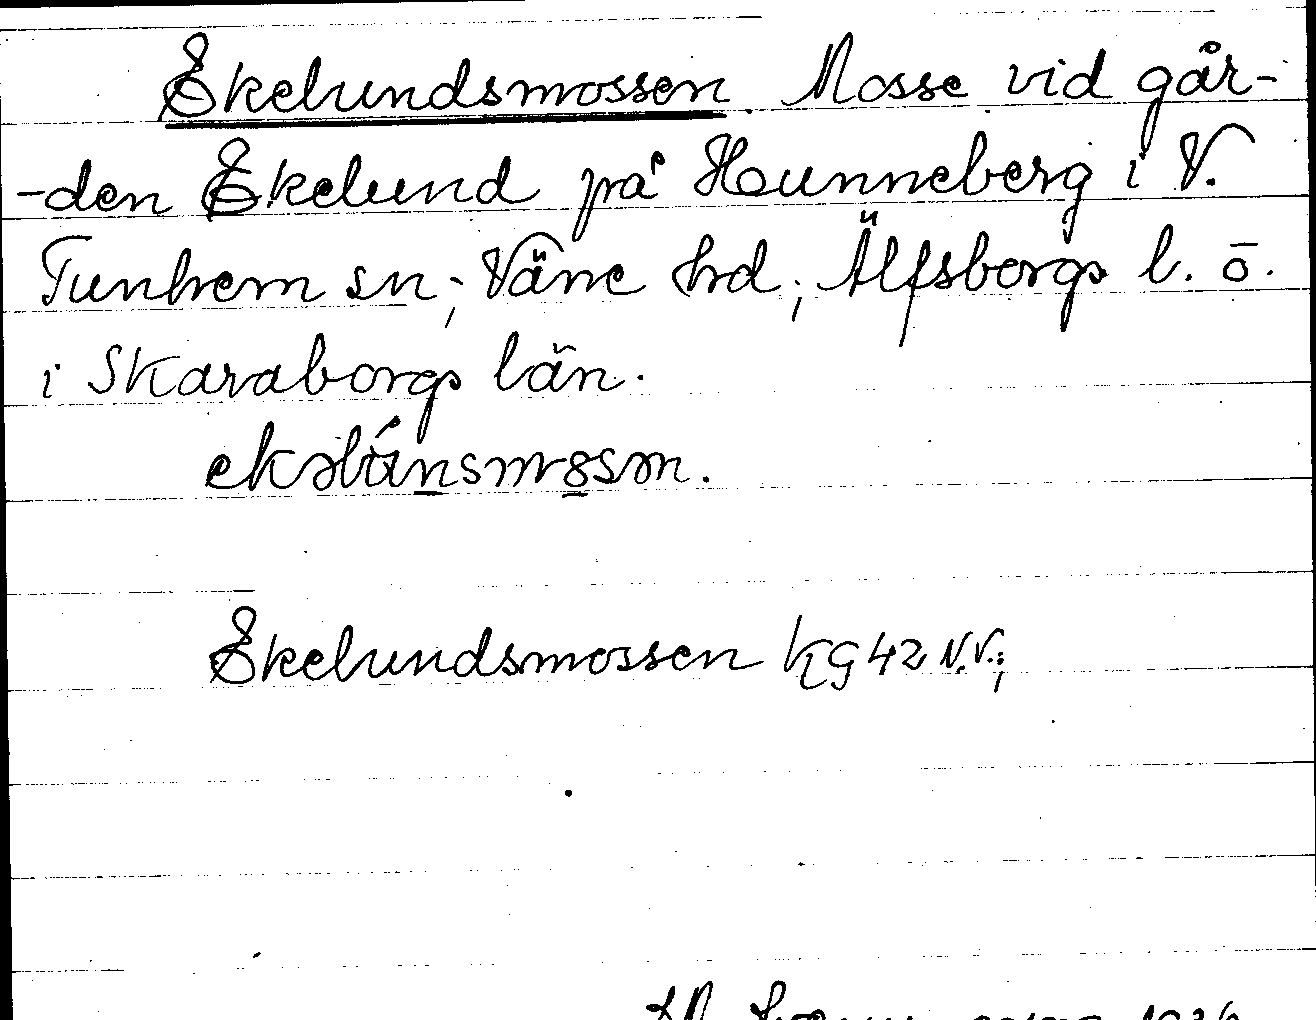 Ekelundsmossen. Mosse vid går-
-den Ekelund på Hunneberg i V.
Tunhem sn; Väne hd; Älfsborgs l. ö.
i Skaraborgs län.
Ekelundsmossen KG 42 N.V.;